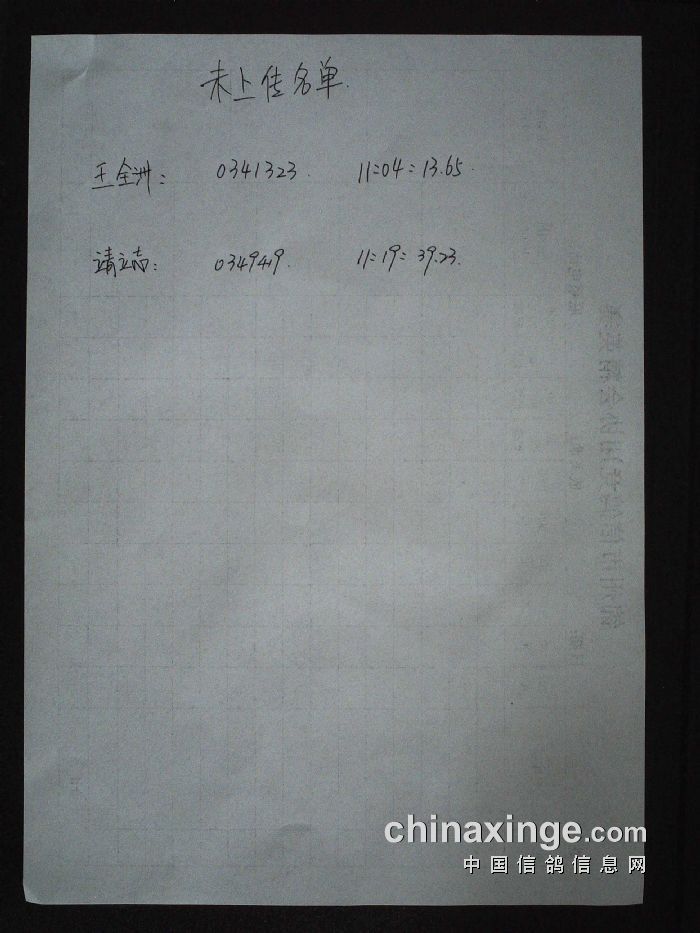 未上传名单.
王全洲: 0341323. 11:04:13.65.
靖立志: 0349419. 11:19:39.23.
chinaxinge.com
中国信鸽信息网